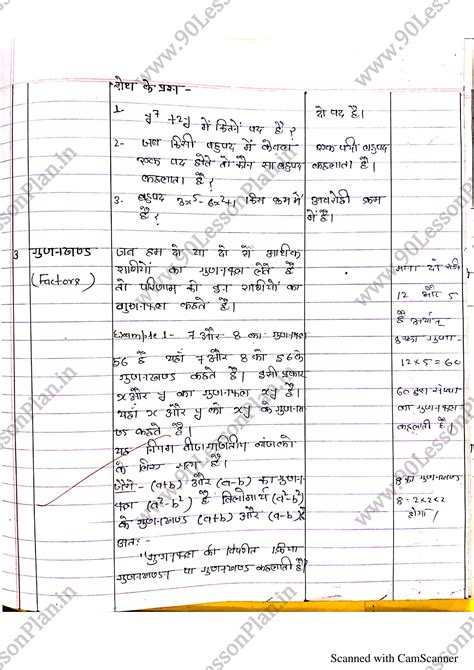 बोध के प्रश्न -
1. y⁷ + 2y में कितने पद है?
दो पद है।
2- जब किसी बहुपद में केवल
एक पद होतो तो कौन सा बहुपद
कहलाता है?
एक पदी बहुपद
कहलाता है।
3. बहुपद 3x⁵-6x²+1 किस क्रम में
है?
अवरोही क्रम
में है।
3 गुणनखण्ड
(Factors)
जब हम दो या दो से अधिक
राशियों का गुणनफल लेते है
तो परिणाम को इन राशियों का
गुणनफल कहते है।
माना दो संख्या
12 और 5
है अर्थात्
गुणा-
12×5=60
60 इस संख्या
का गुणनफल
कहलाती है।
Example 1- 7 और 8 का गुणनफल
56 है यहां 7 और 8 को 56 के
गुणनखण्ड कहते है। इसी प्रकार
x और y का गुणनफल xy है।
यहां x और y को xy के गुणनख
ण्ड कहते है।
यह नियम बीजगणितीय व्यंजको
के लिए सत्य है।
जैसे- (a+b) और (a-b) का गुणन
फल (a²-b²) है इसलिए (a²-b²)
के गुणनखण्ड (a+b) और (a-b) है
8 का गुणनखण्ड
8 = 2×2×2
होगा।
अतः-
"गुणनफल की विपरीत क्रिया
गुणनखण्ड या गुणनखण्ड कहलाती है"
www.90LessonPlan.in
Scanned with CamScanner